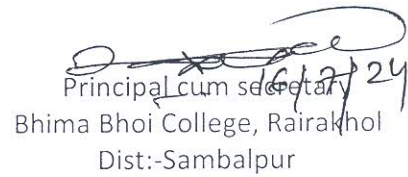 16/7/24
Principal cum secretary
Bhima Bhoi College, Rairakhol
Dist:-Sambalpur